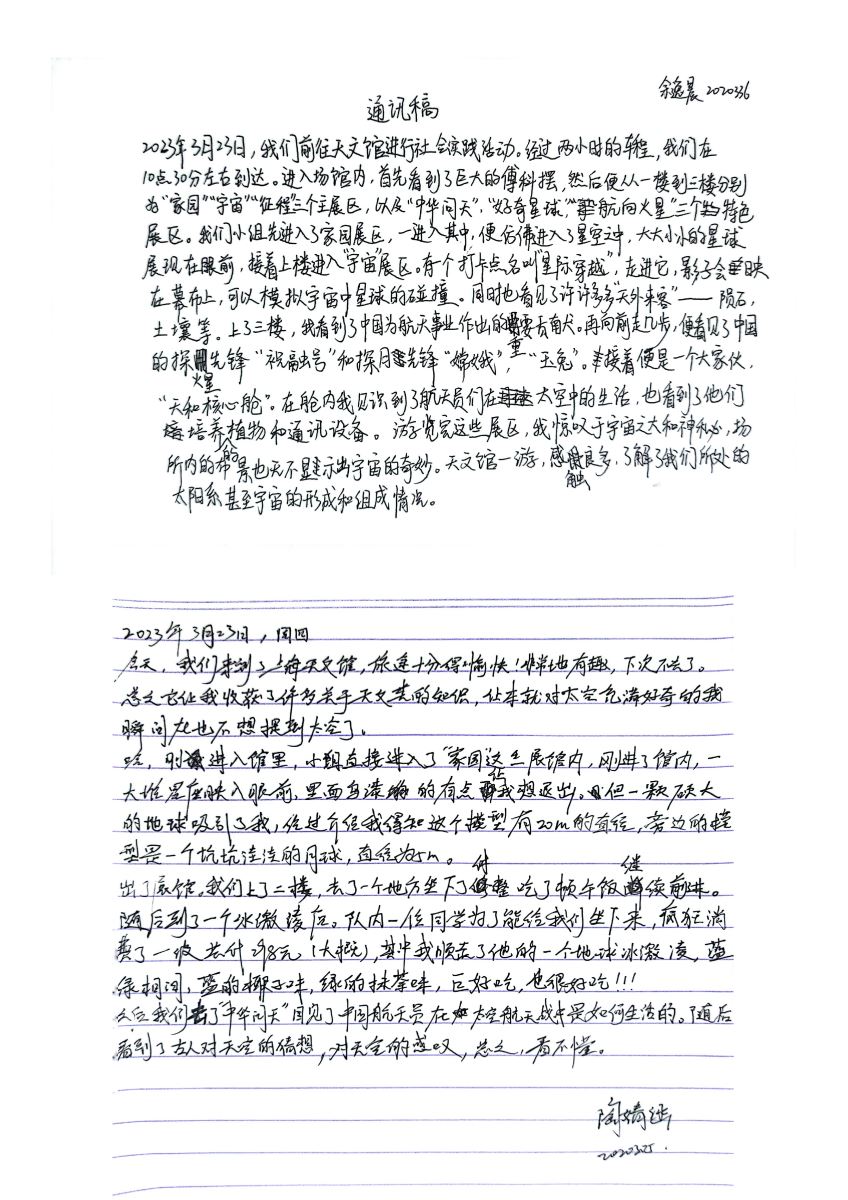 余逸晨 2020336
通讯稿
2023年3月23日,我们前往天文馆进行社会实践活动。经过两小时的车程,我们在
10点30分左右到达。进入场馆内,首先看到了巨大的傅科摆,然后便从一楼到三楼分别
为“家园”“宇宙”“征程”三个主展区,以及“中华问天”,“好奇星球”,“航向火星”三个特色
展区。我们小组先进入了家园展区,一进入其中,便仿佛进入了星空之中,大大小小的星球
展现在眼前,接着上楼进入“宇宙”展区。有个打卡点名叫“星际穿越”,走进它,影子会映
在幕布上,可以模拟宇宙中星球的碰撞。同时也看见了许许多多“天外来客”——陨石,
土壤等。上了三楼,我看到了中国为航天事业作出的重要贡献。再向前走几步,便看见了中国
的探火星先锋“祝融号”和探月先锋“嫦娥”,“玉兔”。接着便是一个大家伙,
“天和核心舱”。在舱内我见识到了航天员们在太空中的生活,也看到了他们
培养植物和通讯设备。游览完这些展区,我惊叹于宇宙之大和神秘,场
所内的布景也无不显示出宇宙的奇妙。天文馆一游,感触良多,了解了我们所处的
太阳系甚至宇宙的形成和组成情况。
2023年3月23日,周四
今天,我们来到了上海天文馆,旅途十分得愉快!非常地有趣,下次不去了。
总之它让我收获了许多关于天文类的知识,让本就对太空充满好奇的我
瞬间再也不想提到太空了。
,刚进入馆里,小组直接进入了“家园”这个展馆内,刚进了馆内,一
大堆星座映入眼前,里面乌漆嘛的有点让我想退出。但一颗硕大
的地球吸引了我,经过介绍我得知这个模型有20m的直径,旁边的模
型是一个坑坑洼洼的月球,直径为5m。
出了展馆,我们上了二楼,去了一个地方坐下休整吃了顿午饭继续前进。
随后到了一个冰激凌店。队内一位同学为了能给我们坐下来,疯狂消
费了一波共付298元(大概),其中我顺走了他的一个地球冰激凌,蓝
绿相间,蓝的椰子味,绿的抹茶味,巨好吃,也很好吃!!!
之后我们去了“中华问天”目见了中国航天员在太空航天城中是如何生活的。随后
看到了古人对天空的猜想,对天空的感叹,总之,看不懂。
陶婧
2020325.